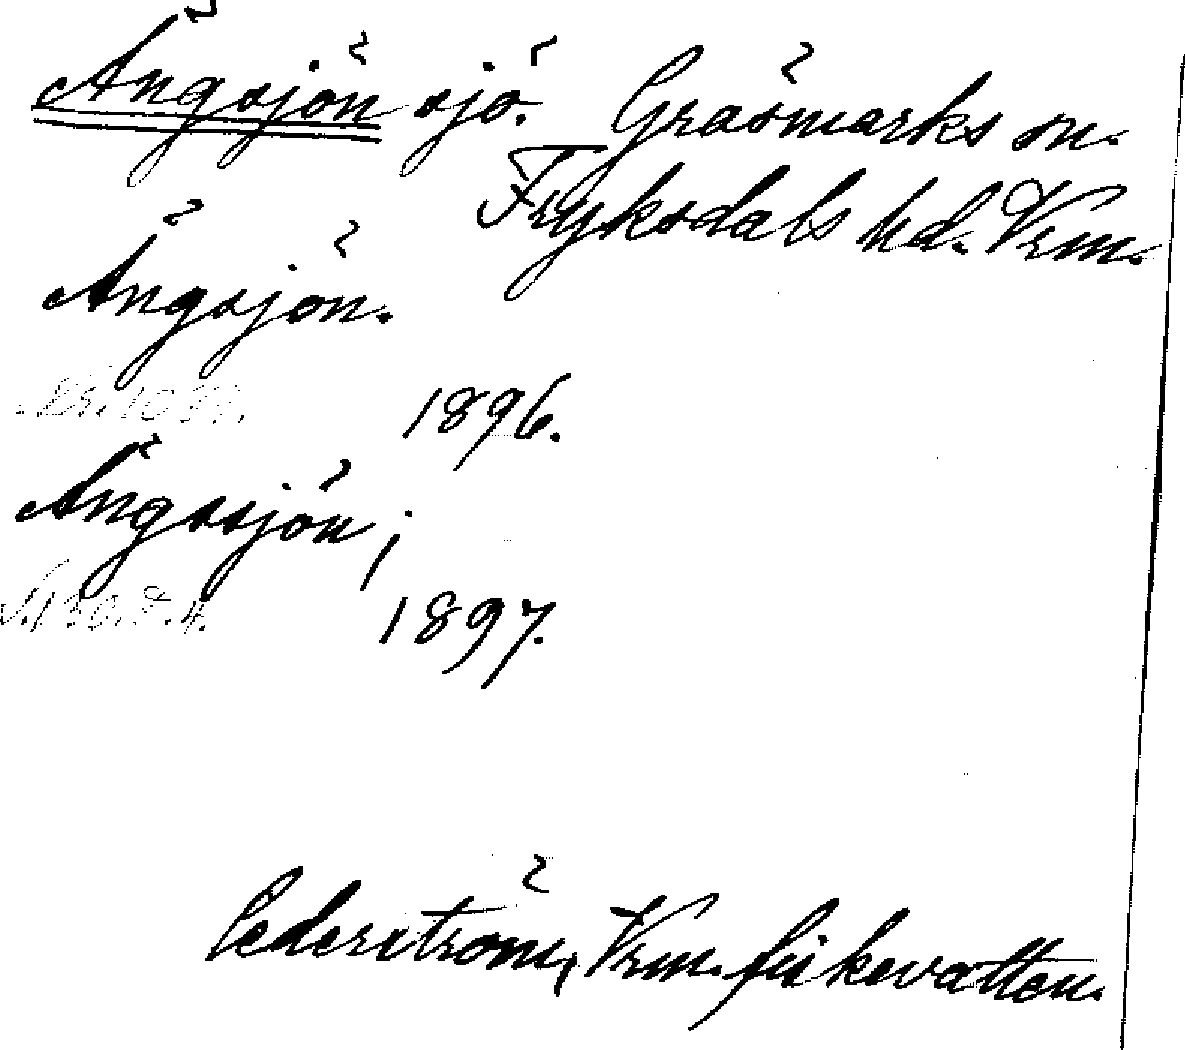 Ängsjön sjö. Gräsmarks sn.
Fryksdals hd. Vrm.
Ängsjön.
1896.
Ängssjön;
1897.
Cederström, Vrm. fiskevatten.